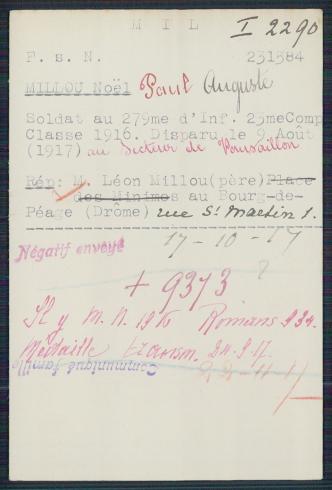 M I L
I 2290
F. s. N. 231584
MILLOU Noël Paul Auguste
Soldat au 279me d'Inf. 23meComp
Classe 1916. Disparu le 9 Août
(1917) au Secteur de
Rép: M. Léon Millou(père)Place
des Minimes au Bourg-de-
Péage (Drôme) rue St Martin 1.
Négatif envoyé 17-10-17
+ 9373
Il y m. n. 1916 Romans 934.
Médaille 24.9.17.
Communiqué famille 22-11-17